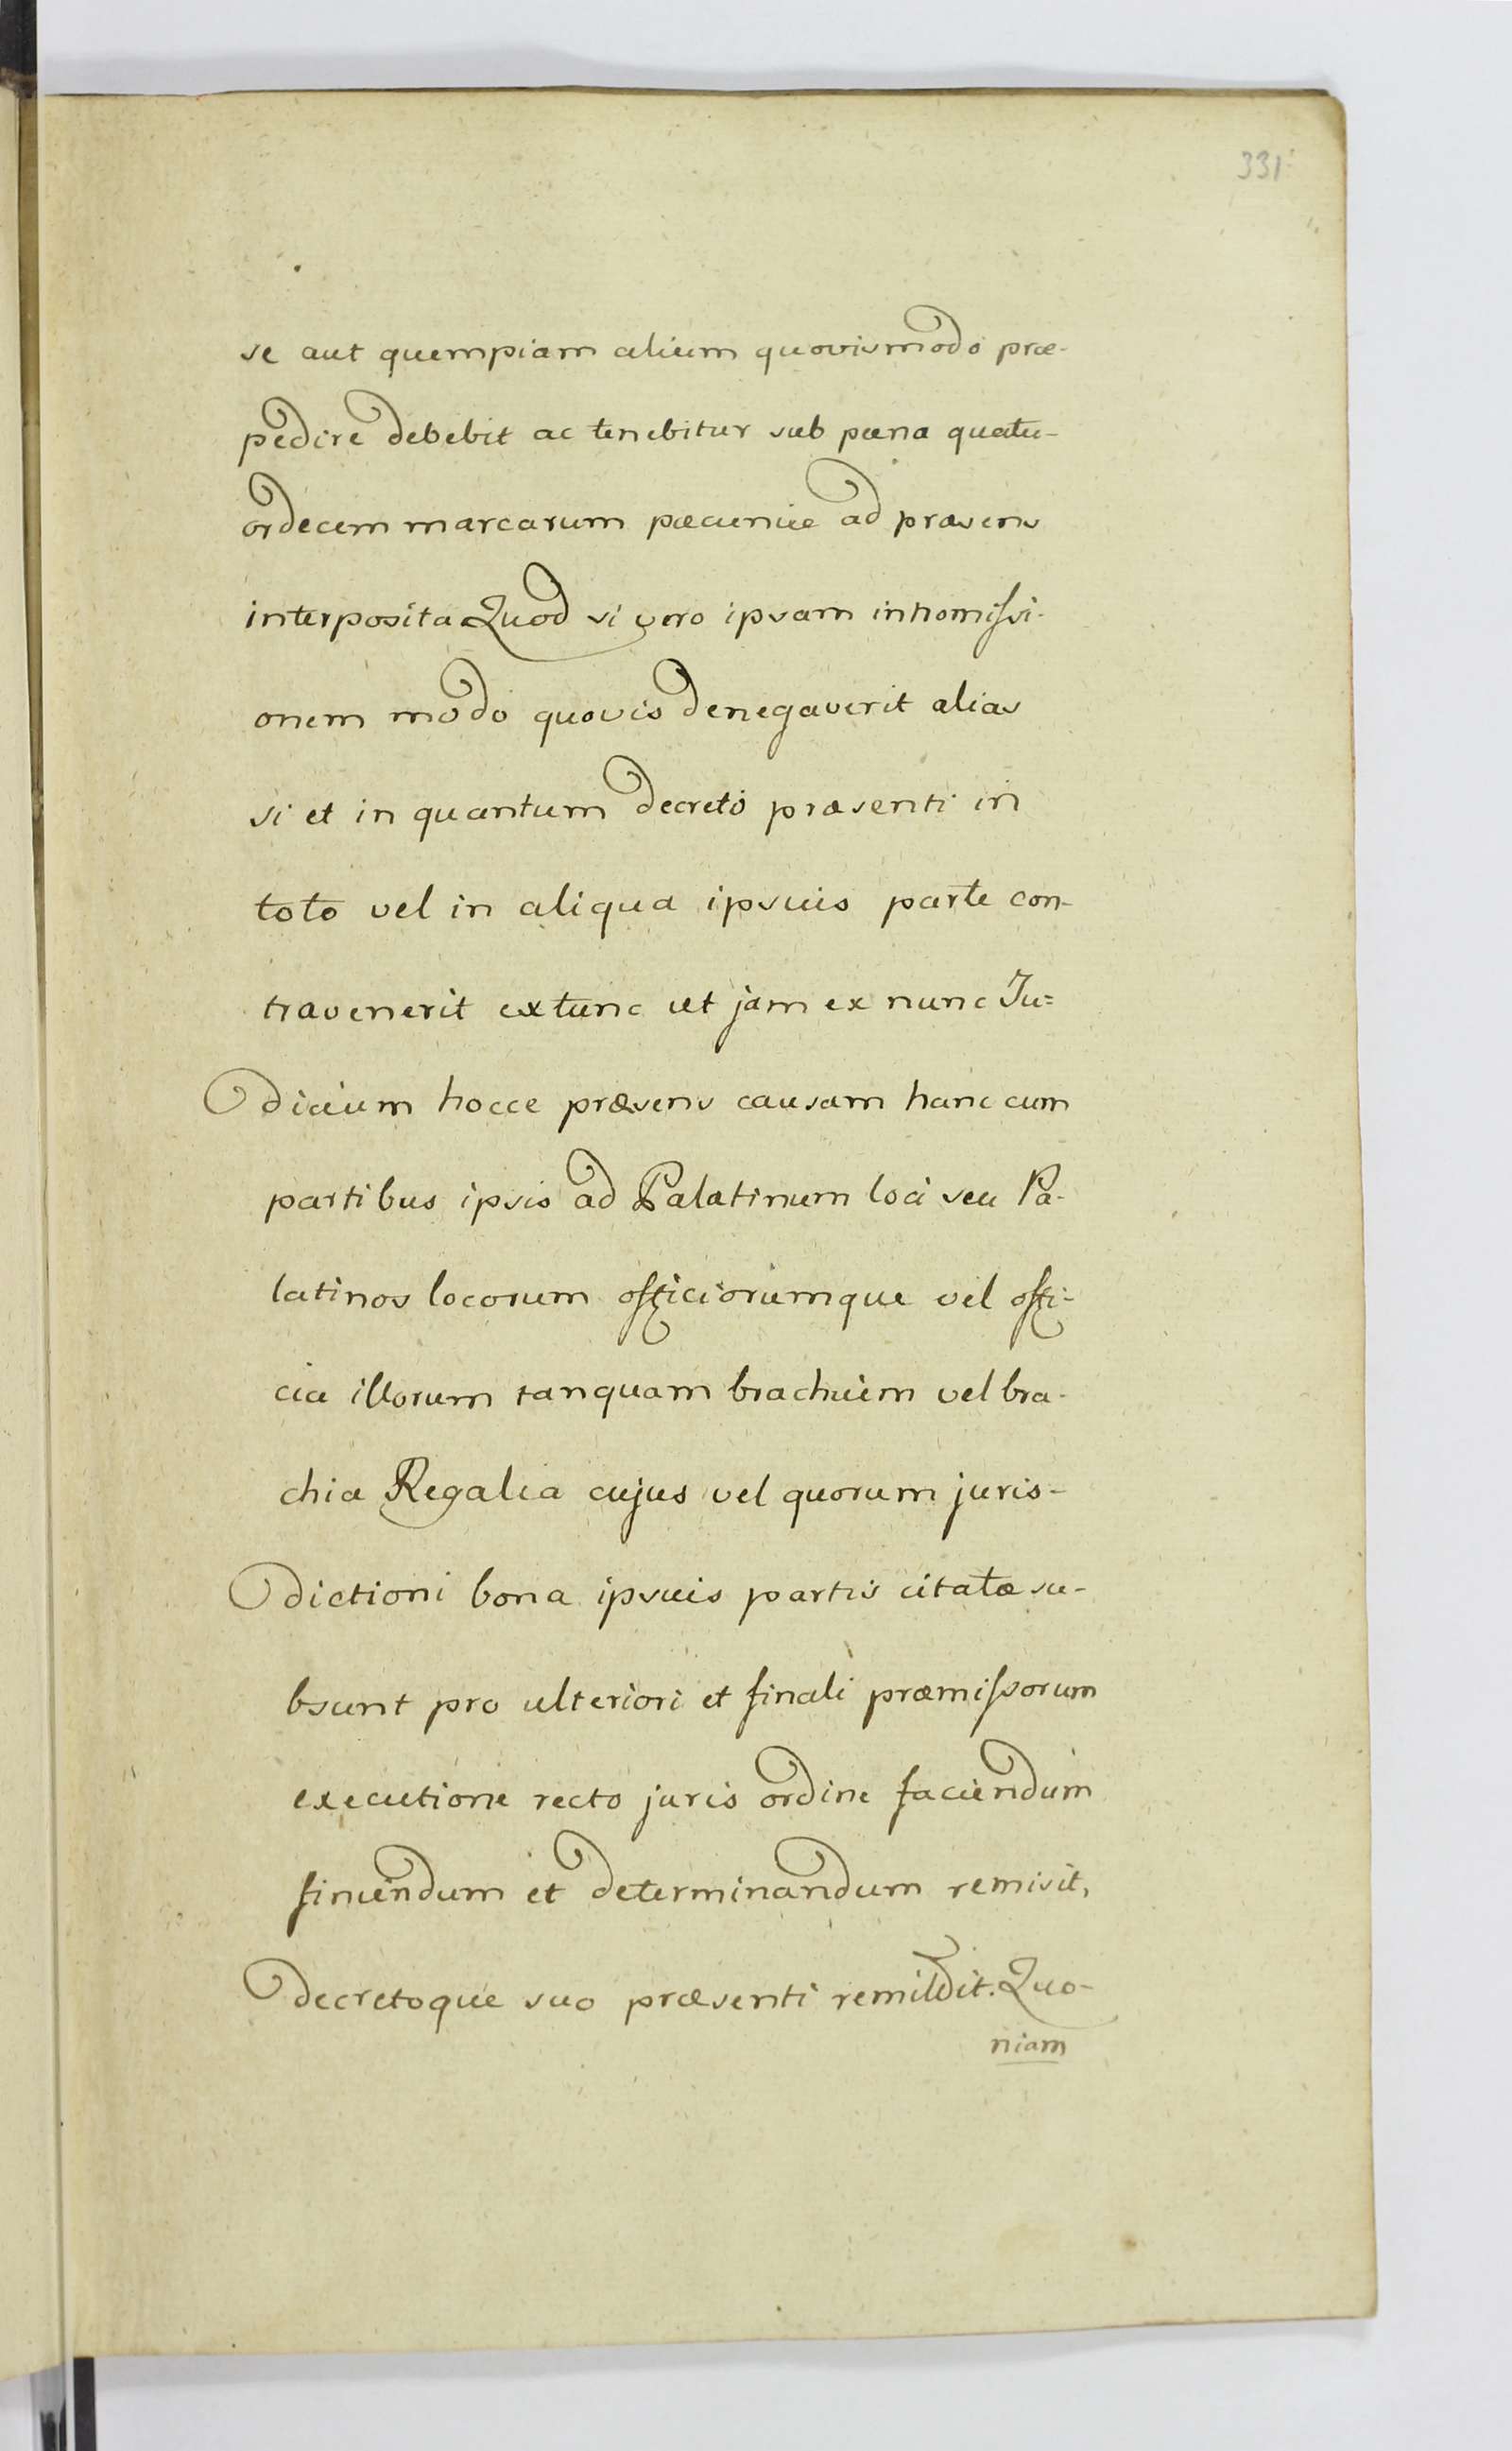 331
se aut quempiam alium quovismodo præ-
pedire debebit ac tenebitur sub pæna quatu-
ordecem marcarum pæcuniæ ad præsens
interposita Quod si vero ipsam intromissi-
onem modo quovis denegaverit alias
si et in quantum decreto præsenti in
toto vel in aliqua ipsius parte con-
travenerit extunc ut jam ex nunc Ju=
dicium hocce præsens causam hanc cum
partibus ipsis ad Palatinum loci seu Pa-
latinos locorum officiorumque vel offi-
cia illorum tanquam brachium vel bra-
chia Regalia cujus vel quorum juris-
dictioni bona ipsius partis citatæ su-
bsunt pro ulteriori et finali præmissorum
executione recto juris ordine faciendum
finiendum et determinandum remisit,
decretoque suo præsenti remittit. Quo-
niam